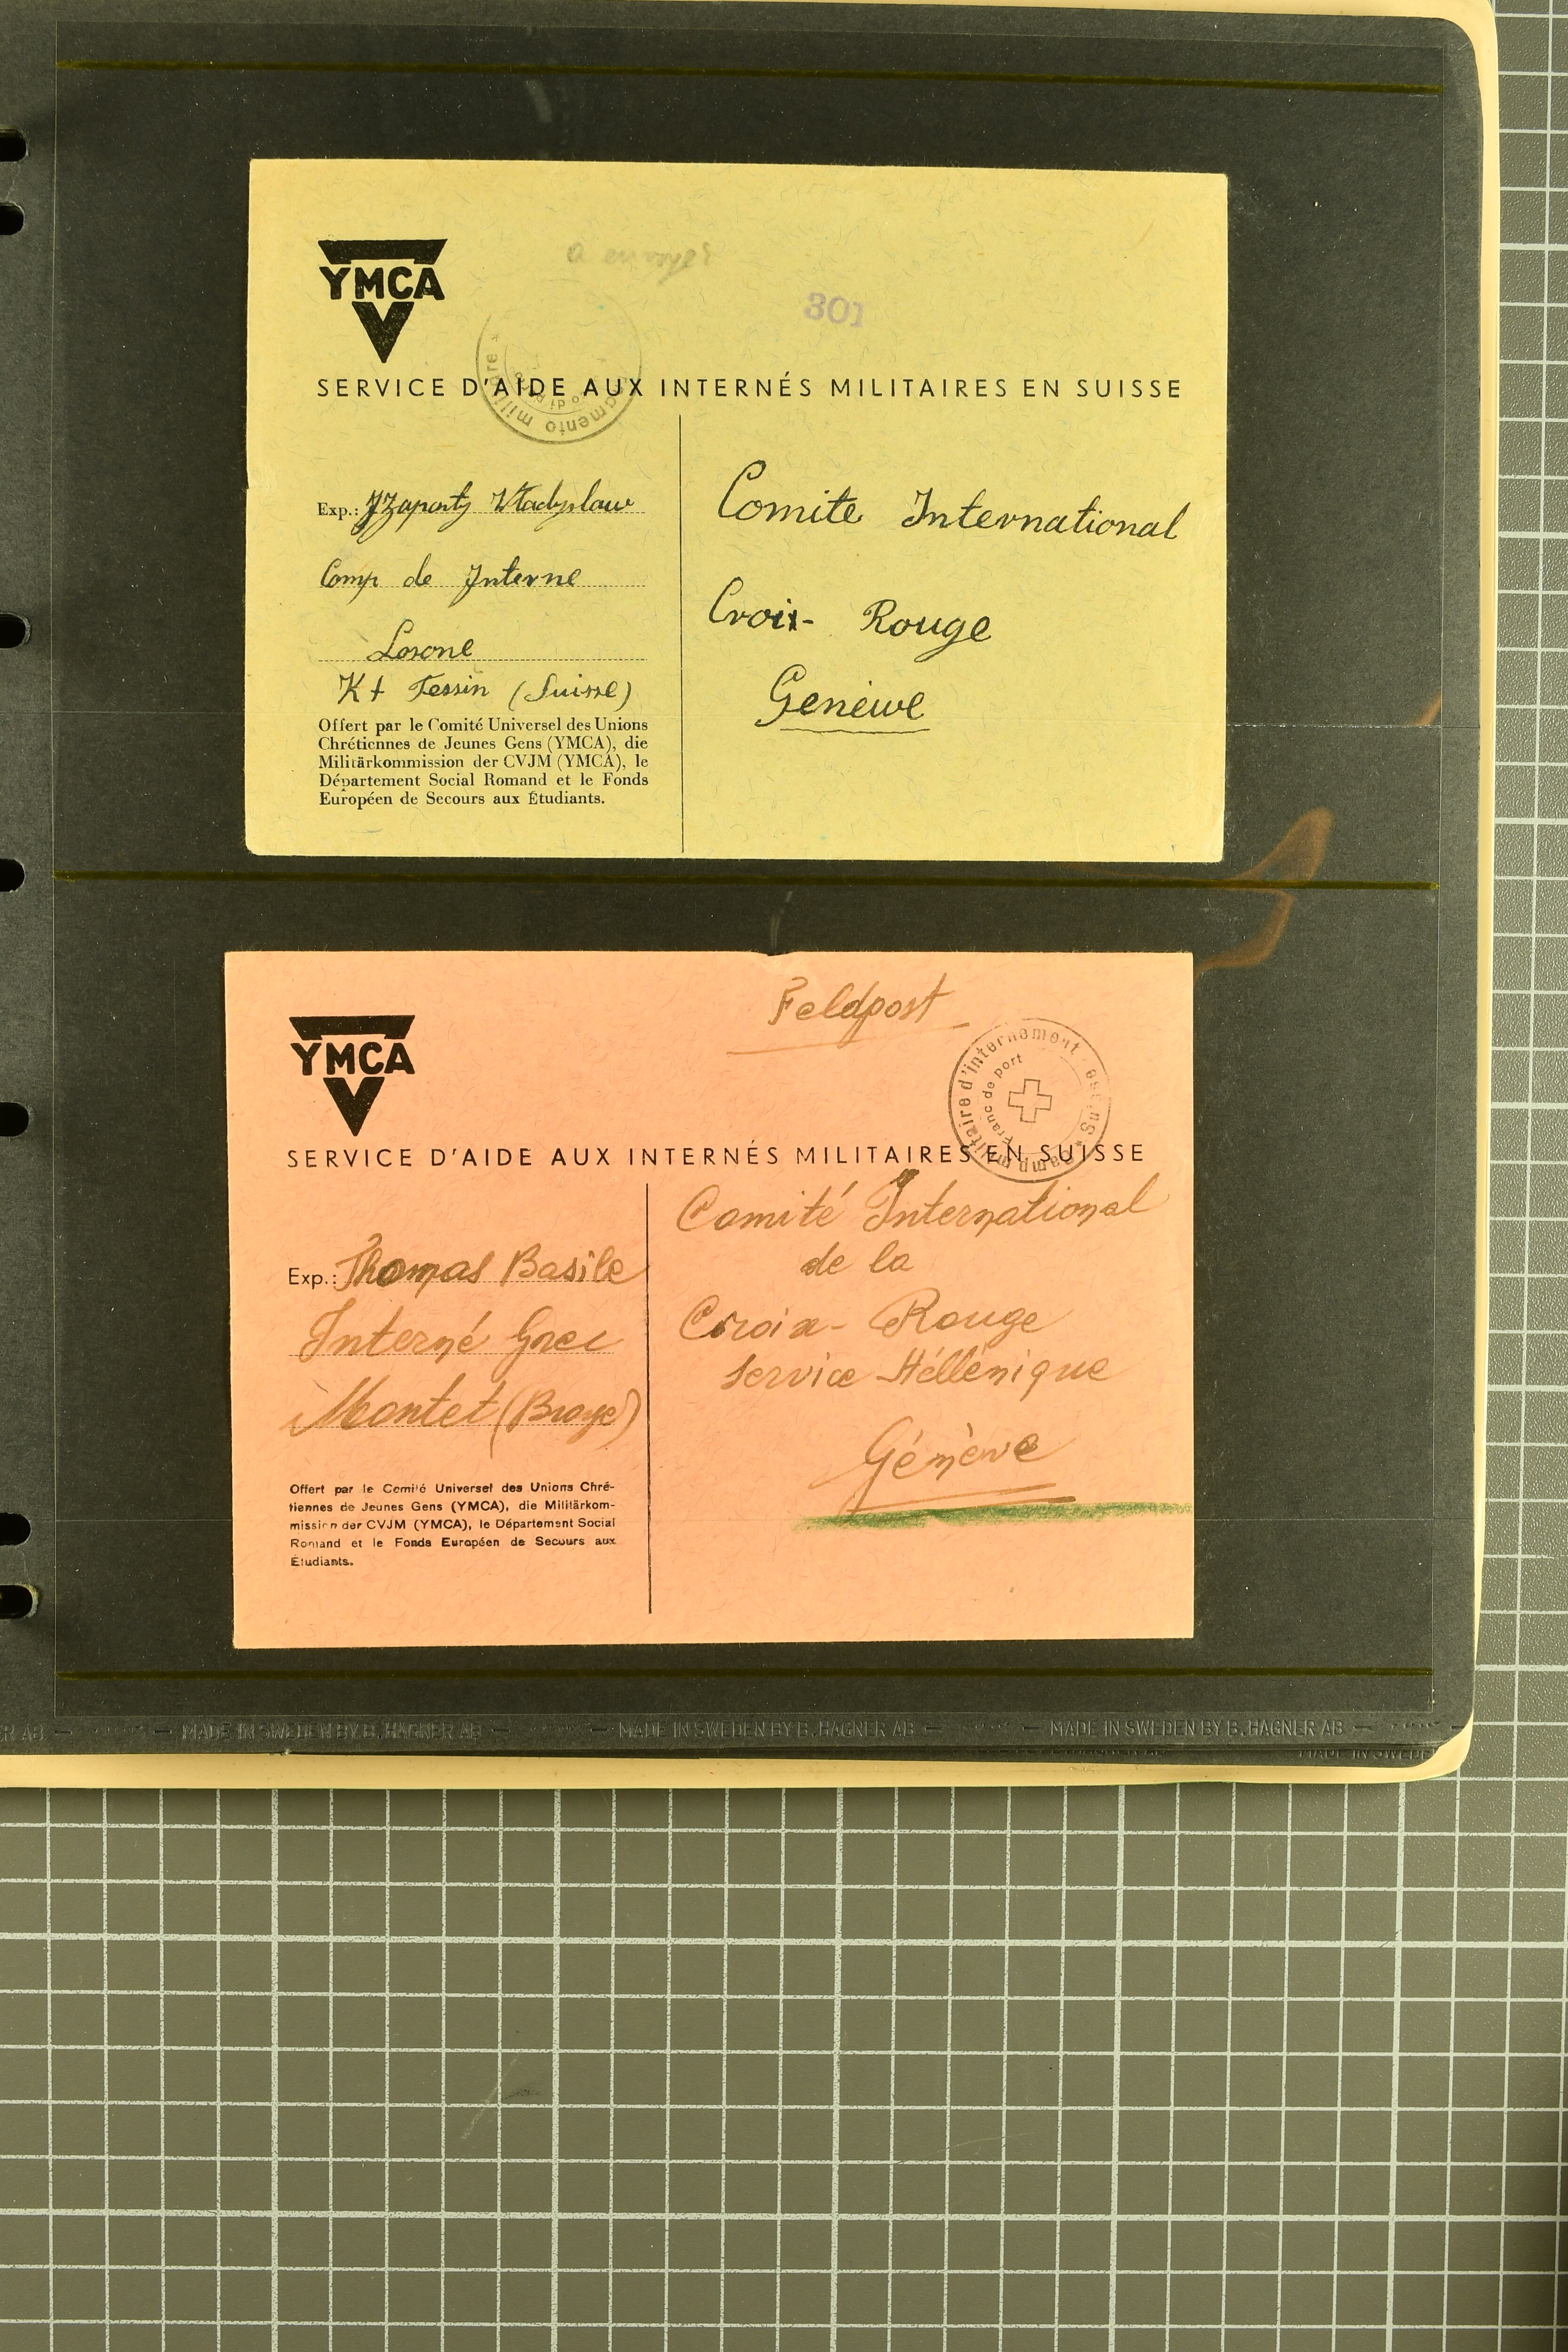 a envoyer
YMCA
301
SERVICE D'AIDE AUX INTERNÉS MILITAIRES EN SUISSE
Exp.: Wladyslaw
Camp de Interne
Losone
Kt Tessin (Suisse)
Offert par le Comité Universel des Unions
Chrétiennes de Jeunes Gens (YMCA), die
Militärkommission der CVJM (YMCA), le
Département Social Romand et le Fonds
Européen de Secours aux Étudiants.
Comite International
Croix-Rouge
Geneiwe
Feldpost
YMCA
Camp militaire d'internement
Franc de port
SERVICE D'AIDE AUX INTERNÉS MILITAIRES EN SUISSE
Exp.: Thomas Basile
Interné Grec
Montet (Broye)
Offert par le Comité Universel des Unions Chré-
tiennes de Jeunes Gens (YMCA), die Militärkom-
mission der CVJM (YMCA), le Département Social
Romand et le Fonds Européen de Secours aux
Étudiants.
Comité International
de la
Croix-Rouge
Service Héllénique
Génève
MADE IN SWEDEN BY B. HAGNER AB — MADE IN SWEDEN BY B. HAGNER AB — MADE IN SWEDEN BY B. HAGNER AB